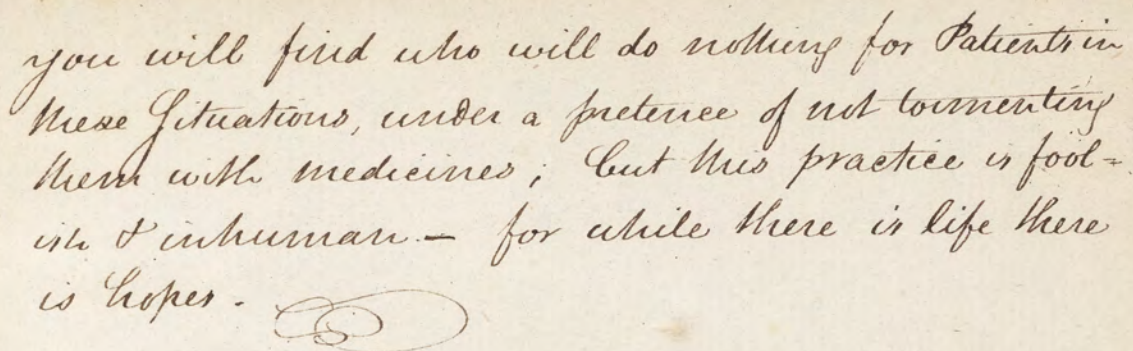 you will find who will do nothing for Patients in
these Situations, under a pretence of not tormenting
them with medicines; but this practice is fool=
ish & inhuman — for while there is life there
is hopes.